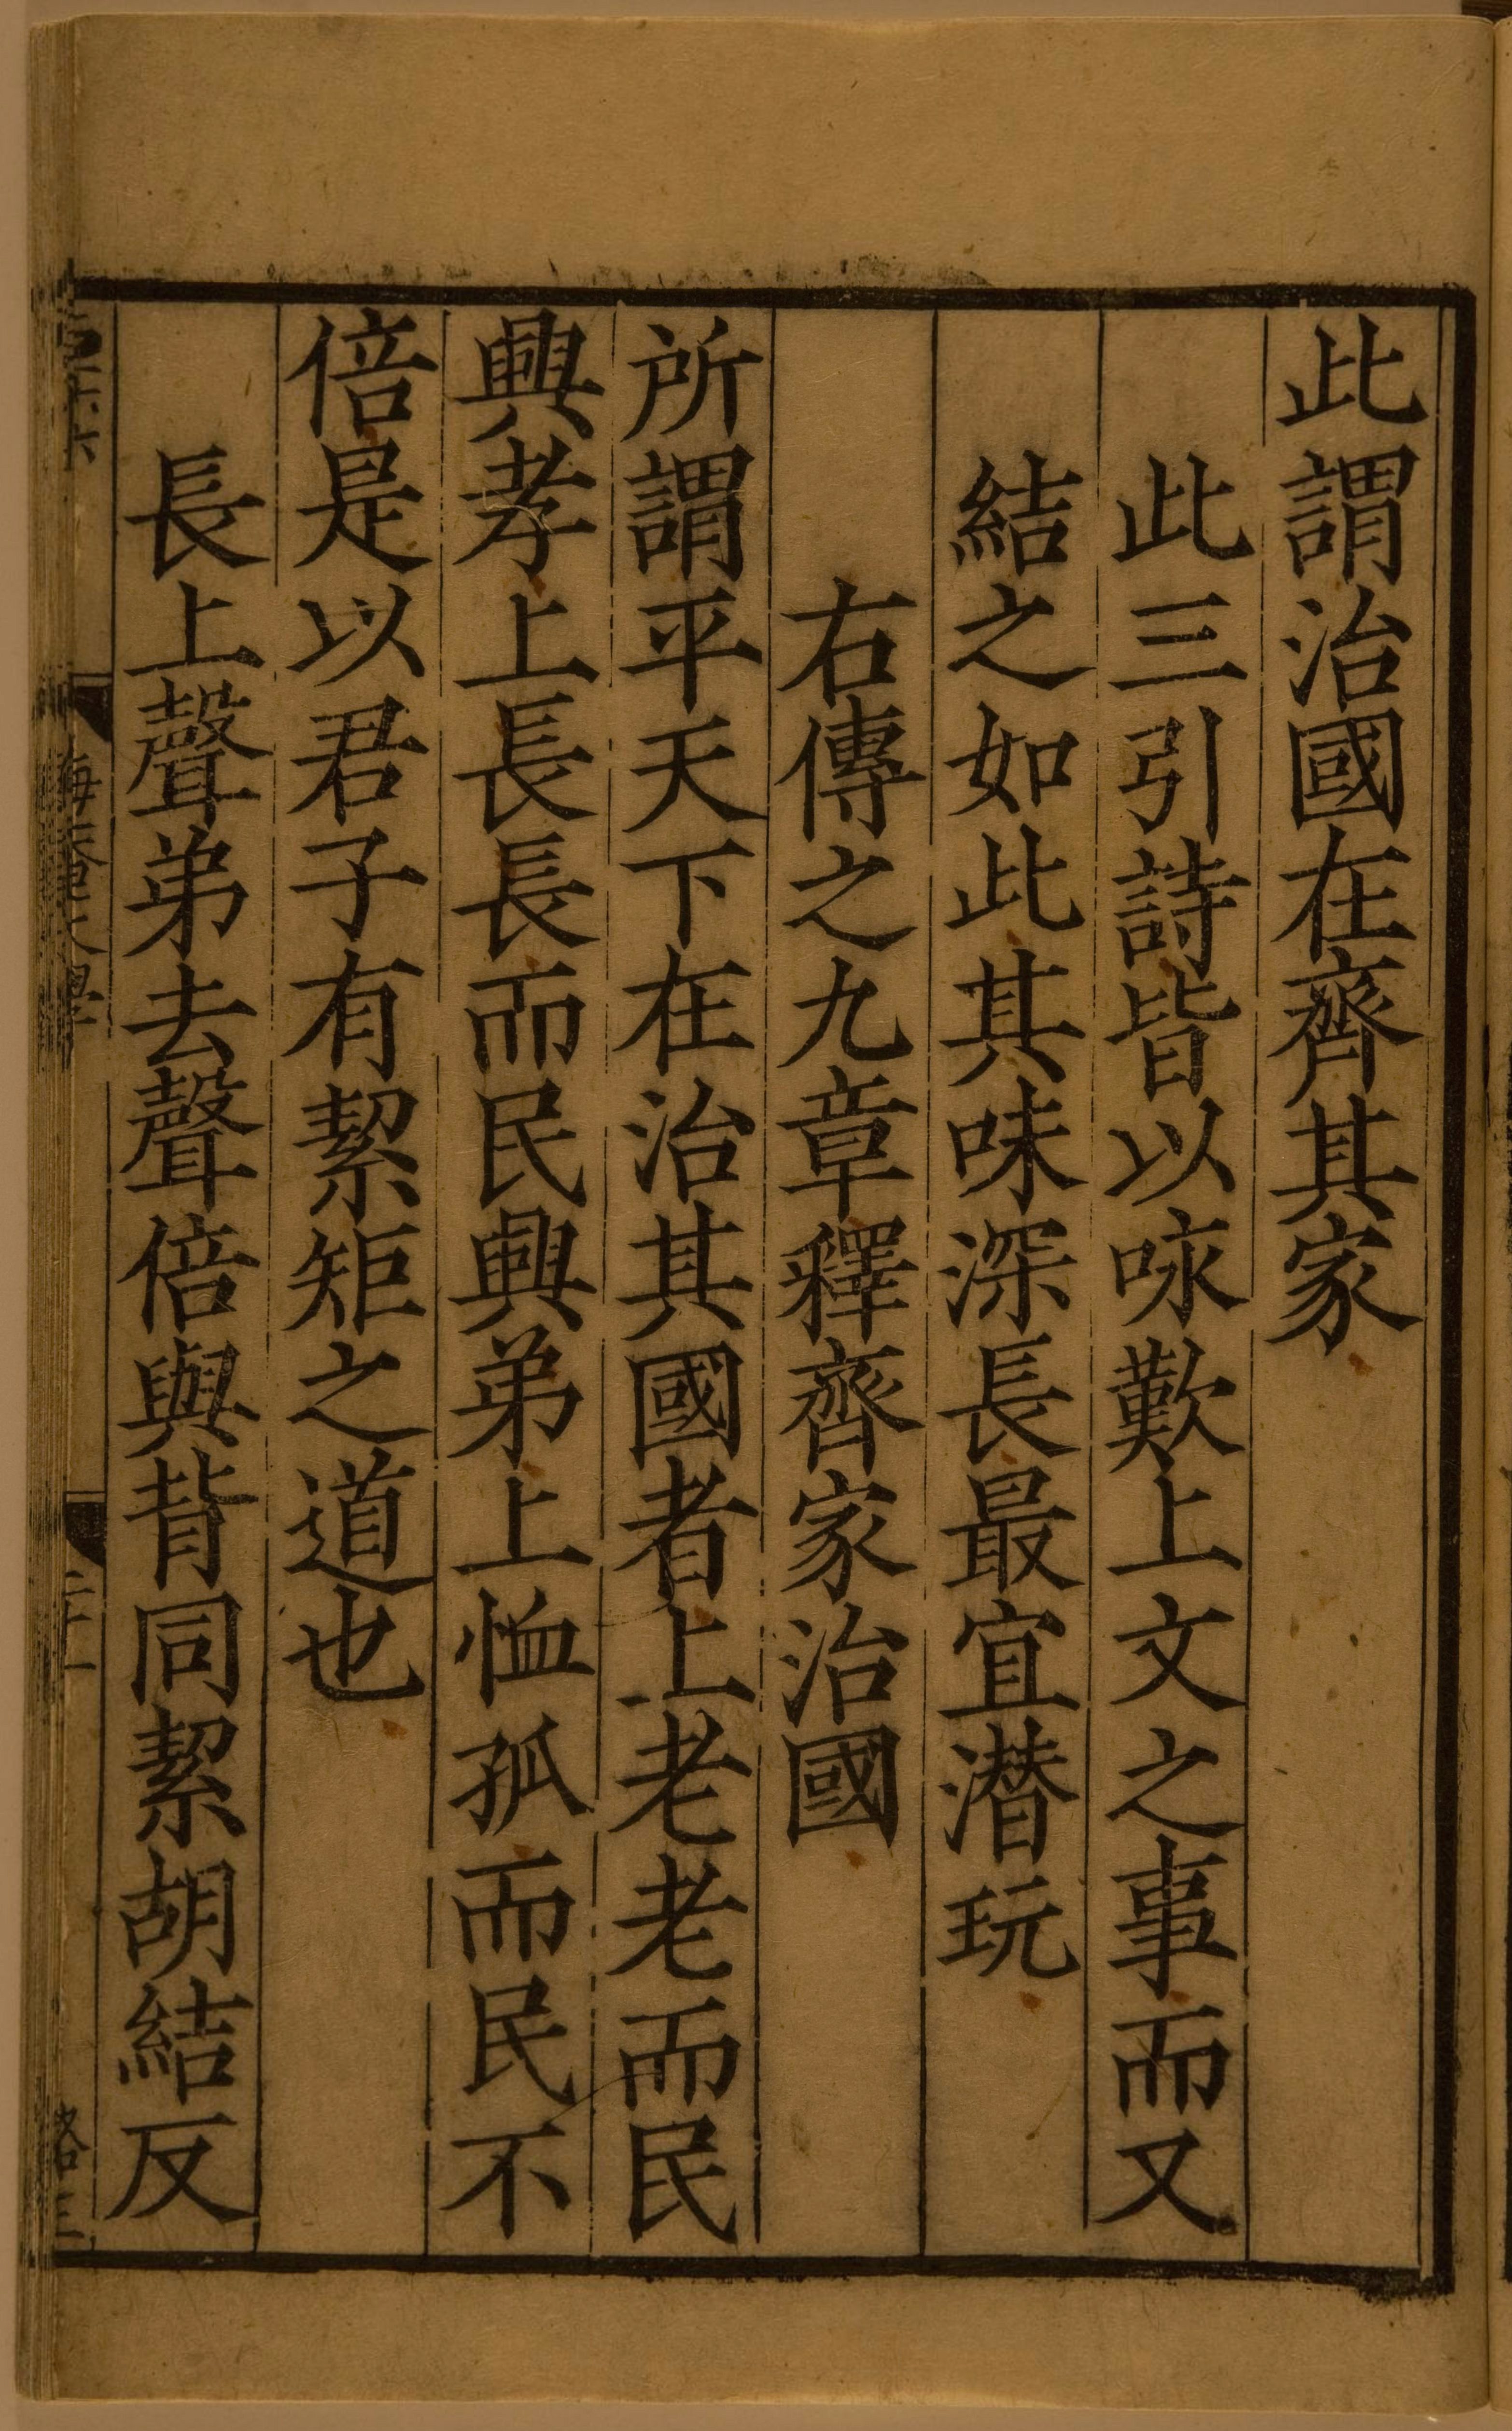 此謂治國在齊其家
此三引詩皆以咏歎上文之事而又
結之如此其味深長最宜潛玩
右傳之九章釋齊家治國
所謂平天下在治其國者上老老而民
興孝上長長而民興弟上恤孤而民不
倍是以君子有絜矩之道也
長上聲弟去聲倍與背同絜胡結反